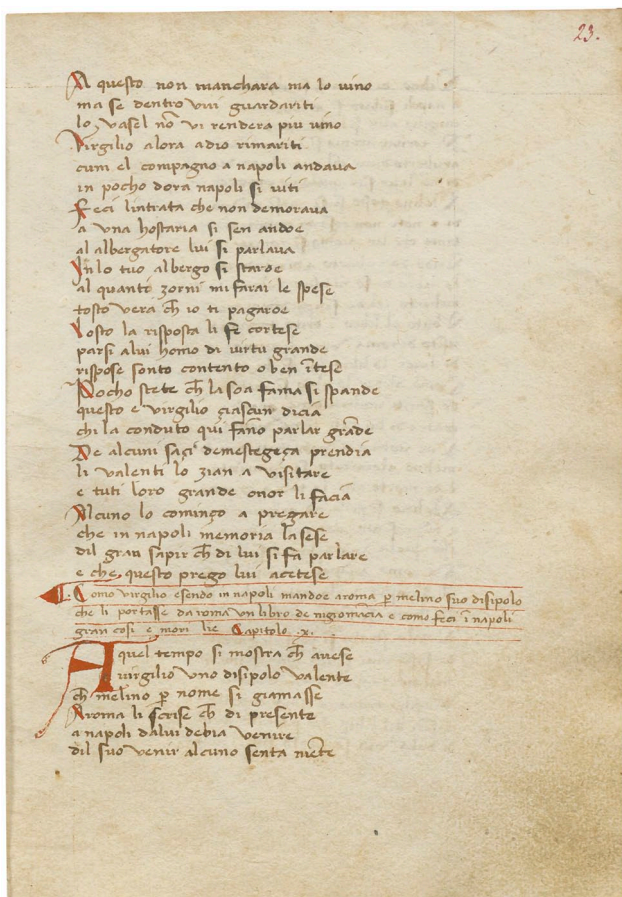 23.
A questo non manchara ma lo vino
ma se dentro vui guardariti
lo vasel nō vi rendera piu vino
Virgilio alora adio rimariti
cum el compagno a napoli andava
in pocho dora napoli si viti
Feci lintrata che non demorava
a una hostaria si sen andoe
al albergatore lui si parlava
In lo tuo albergo si staroe
al quanti zorni mi farai le spese
tosto vera ch̄ io ti pagaroe
Tosto la risposta li fe cortese
parsi alui homo di virtu grande
rispose sonto contento o ben ītese
Pocho stete ch̄ la soa fama si spande
questo e virgilio ciascun dicia
chi la conduto qui fano parlar grāde
De alcuni saçi demestegeça prendia
li valenti lo zian a visitare
e tuti loro grande onor li facia
Alcuno lo cominço a pregare
che in napoli memoria la sese
dil gran sapir ch̄ di lui si fa parlare
e che questo prego lui acetese
Como virgilio esendo in napoli mandoe aroma p̄ melino suo disipolo
che li portasse da roma un libro de nigromācia e como feci ī napoli
gran cosi e mori lie Capitolo .x.
A quel tempo si mostra ch̄ avese
virgilio uno disipolo valente
ch̄ melino p̄ nome si giamasse
Aroma li scrise ch̄ di presente
a napoli dalui debia venire
dil suo venir alcuno senta niēte